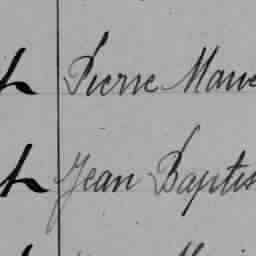 Pierre Marie
Jean Baptis